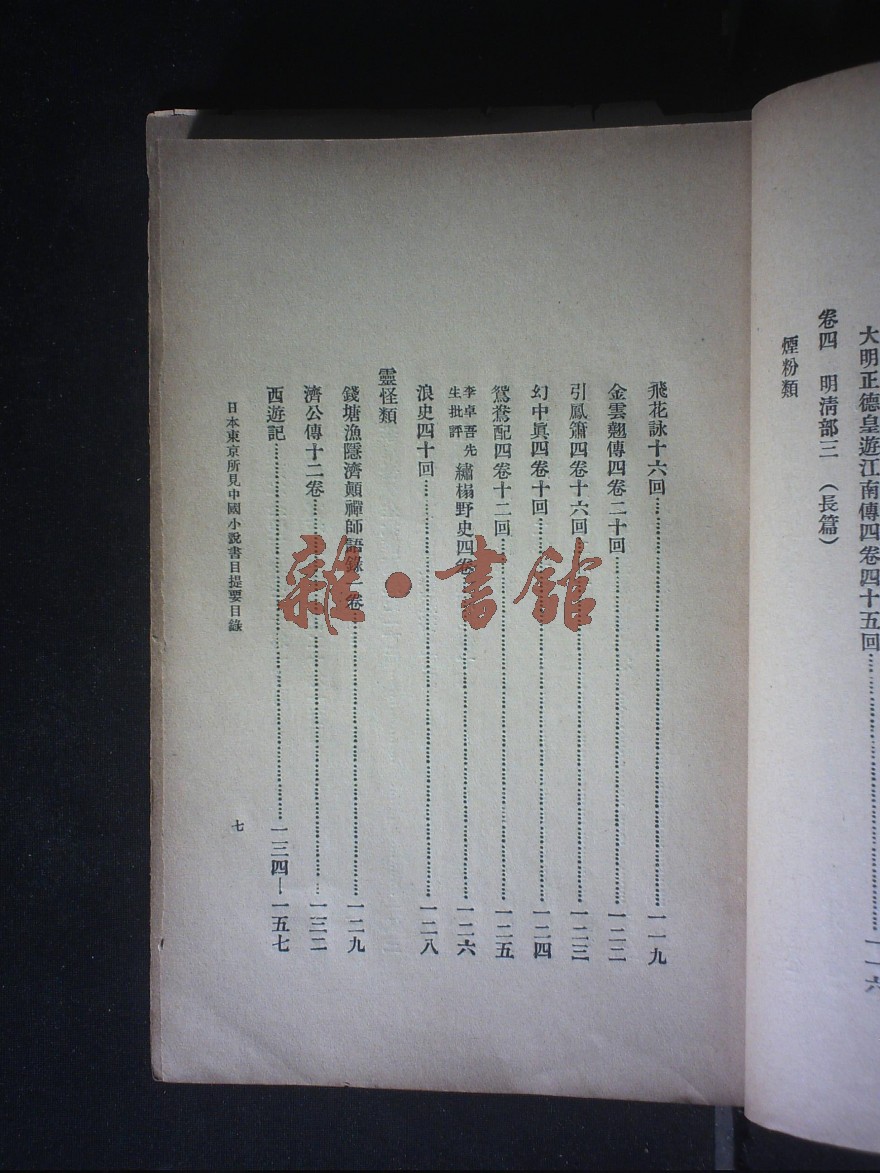 大明正德皇遊江南傳四卷四十五回……一一六
卷四　明清部三　（長篇）
煙粉類
飛花詠十六回……一一九
金雲翹傳四卷二十回……一二二
引鳳簫四卷十六回……一二三
幻中眞四卷十回……一二四
鴛鴦配四卷十二回……一二五
李卓吾先生批評　繡榻野史四卷……一二六
浪史四十回……一二八
靈怪類
錢塘漁隱濟顛禪師語錄一卷……一二九
濟公傳十二卷……一三二
西遊記……一三四—一五七
日本東京所見中國小說書目提要目錄
七
雜·書館